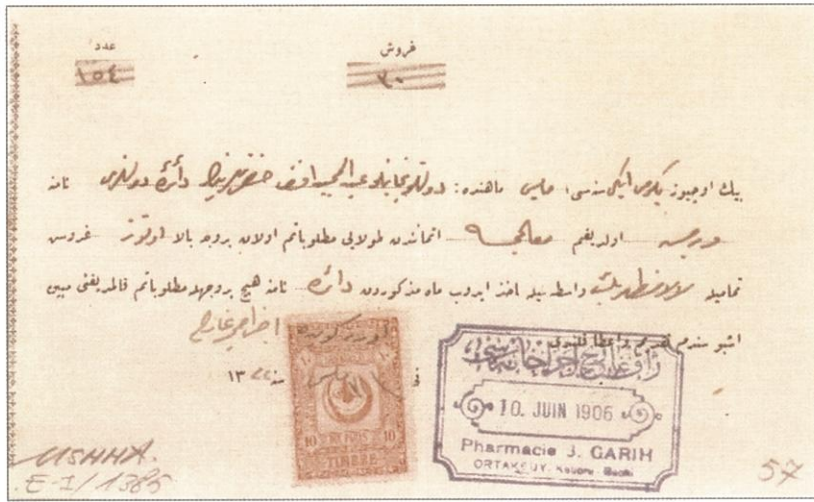 عدد
١٥٤
غروش
٣٠
بيك اوچيوز يكرمى ايكى سنه‌سى مايس ماهنده: دولتلو نجابتلو عبد المجيد افندى حضرتلرينك دائرۀ دولتلرى نامنه
اولديغم معالجه اثماندن طولايى مطلوباتم اولان بروجه بالا اوتوز غروش
تماميله واسطه‌سيله اخذ ايدوب ماه مذكورده دائرۀ نامنه هيچ بروجهله مطلوباتم قالمديغنى مبين
اشبو سندم تقديم واعطا قلندى
فى مايس سنه ١٣٢٢
اجزاجى غارح
10 DIX PARAS 10
TIMBRE
ژاق غارح اجزاخانه‌سى
10. JUIN 1906
Pharmacie J. GARIH
ORTAKEUY,
MSHHA.
E-I/1385
57